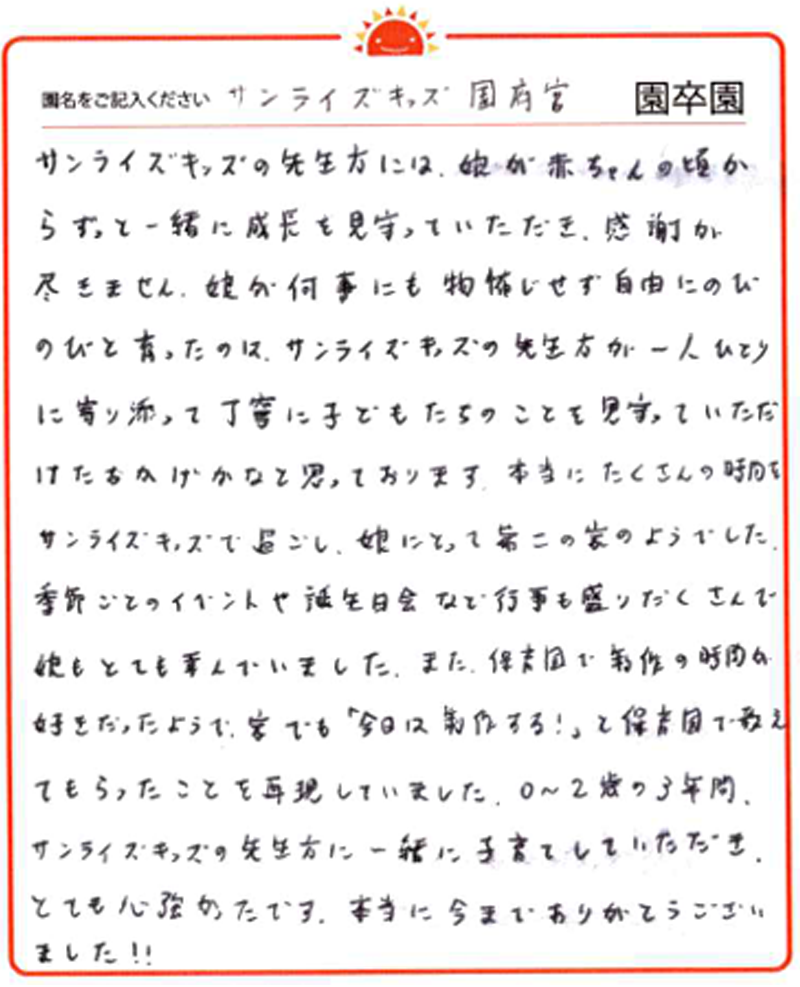 園名をご記入ください サンライズキッズ 国府宮 園卒園
サンライズキッズの先生方には、娘が赤ちゃんの頃か
らずっと一緒に成長を見守っていただき、感謝が
尽きません。娘が何事にも物怖じせず自由にのび
のびと育ったのは、サンライズキッズの先生方が一人ひとり
に寄り添って丁寧に子どもたちのことを見守っていただ
けたおかげかなと思っております。本当にたくさんの時間を
サンライズキッズで過ごし、娘にとって第二の家のようでした。
季節ごとのイベントや誕生日会など行事も盛りだくさんで
娘もとても喜んでいました。また、保育園で製作の時間が
好きだったようで、家でも「今日は製作する!」と保育園で教え
てもらったことを再現していました。0〜2歳の3年間、
サンライズキッズの先生方に一緒に子育てしていただき、
とても心強かったです。本当に今までありがとうござい
ました!!